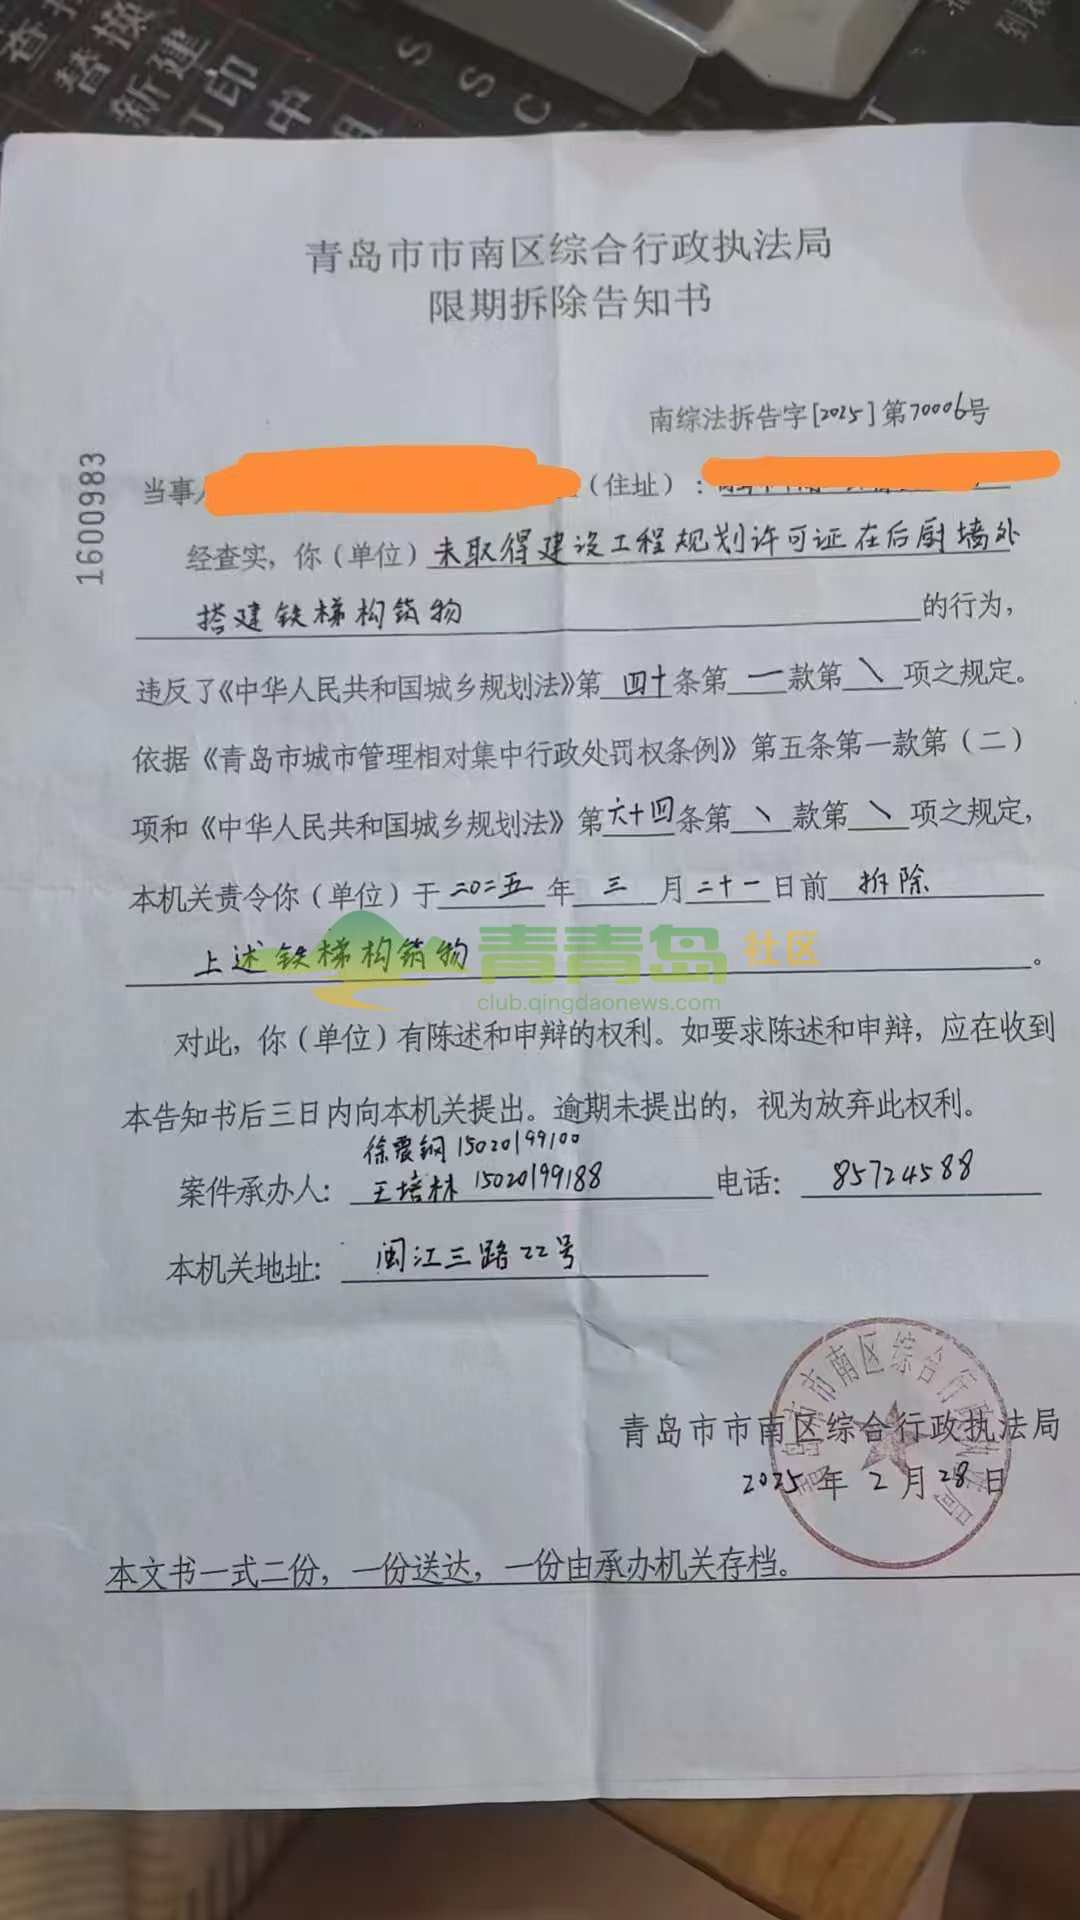 替换
新建
打印
中
S
S
C
T
青岛市市南区综合行政执法局
限期拆除告知书
南综法拆告字[2025]第70006号
1600983
当事人
（住址）：
经查实，你（单位）未取得建设工程规划许可证在后厨墙处
搭建铁梯构筑物的行为，
违反了《中华人民共和国城乡规划法》第四十条第一款第\项之规定。
依据《青岛市城市管理相对集中行政处罚权条例》第五条第一款第（二）
项和《中华人民共和国城乡规划法》第六十四条第\款第\项之规定，
本机关责令你（单位）于二〇二五年三月二十一日前拆除
上述铁梯构筑物。
青青岛社区
club.qingdaonews.com
对此，你（单位）有陈述和申辩的权利。如要求陈述和申辩，应在收到
本告知书后三日内向本机关提出。逾期未提出的，视为放弃此权利。
徐震钢 15020199100
案件承办人：王培林 15020199188 电话：85724588
本机关地址：闽江三路22号
青岛市市南区综合行政执法局
青岛市市南区综合行政执法局
2025年2月28日
本文书一式二份，一份送达，一份由承办机关存档。